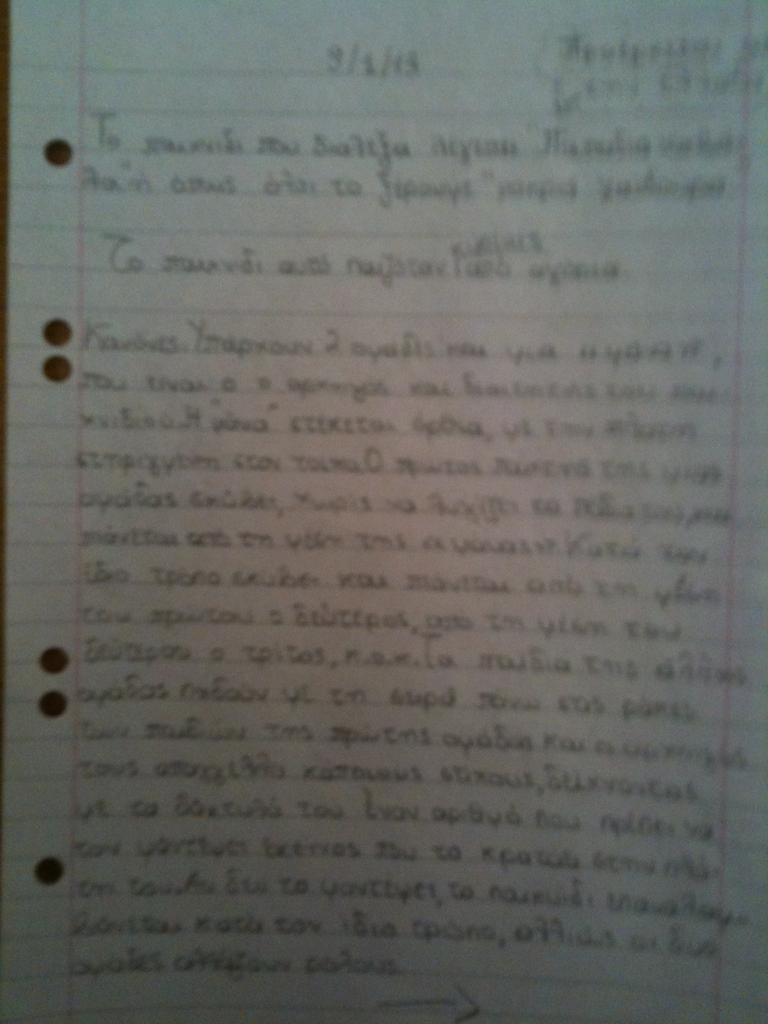 9/1/13
στην
Το παιχνίδι που διάλεξα λέγεται
λα" ή όπως όλοι το ξέρουμε "μακριά γαιδούρα
Το παιχνίδι αυτό παιζόταν κυρίως από αγόρια.
Κανόνες: Υπάρχουν 2 ομάδες και μια "μάνα",
που είναι ο ο αρχηγός και διαιτητής του παι-
χνιδιού. Η "μάνα" στέκεται όρθια, με την πλάτη
στηριγμένη στον τοίχο. Ο πρώτος παίκτης της μιας
ομάδας σκύβει, χωρίς να λυγίζει τα πόδια του, και
πιάνεται από τη μέση της "μάνας". Κατά τον
ίδιο τρόπο σκύβει και πιάνεται από τη μέση
του πρώτου ο δεύτερος, από τη μέση του
δεύτερου ο τρίτος, κ.ο.κ. Τα παιδιά της άλλης
ομάδας πηδούν με τη σειρά πάνω στις ράχες
των παιδιών της πρώτης ομάδας και ο αρχηγός
τους απαγγέλλει κάποιους στίχους, δείχνοντας
με τα δάκτυλά του έναν αριθμό που πρέπει να
τον μαντέψει εκείνος που το κρατάει στην πλά-
τη του. Αν δεν το μαντέψει, το παιχνίδι επαναλαμ-
βάνεται κατά τον ίδιο τρόπο, αλλιώς οι δυο
ομάδες αλλάζουν ρόλους.